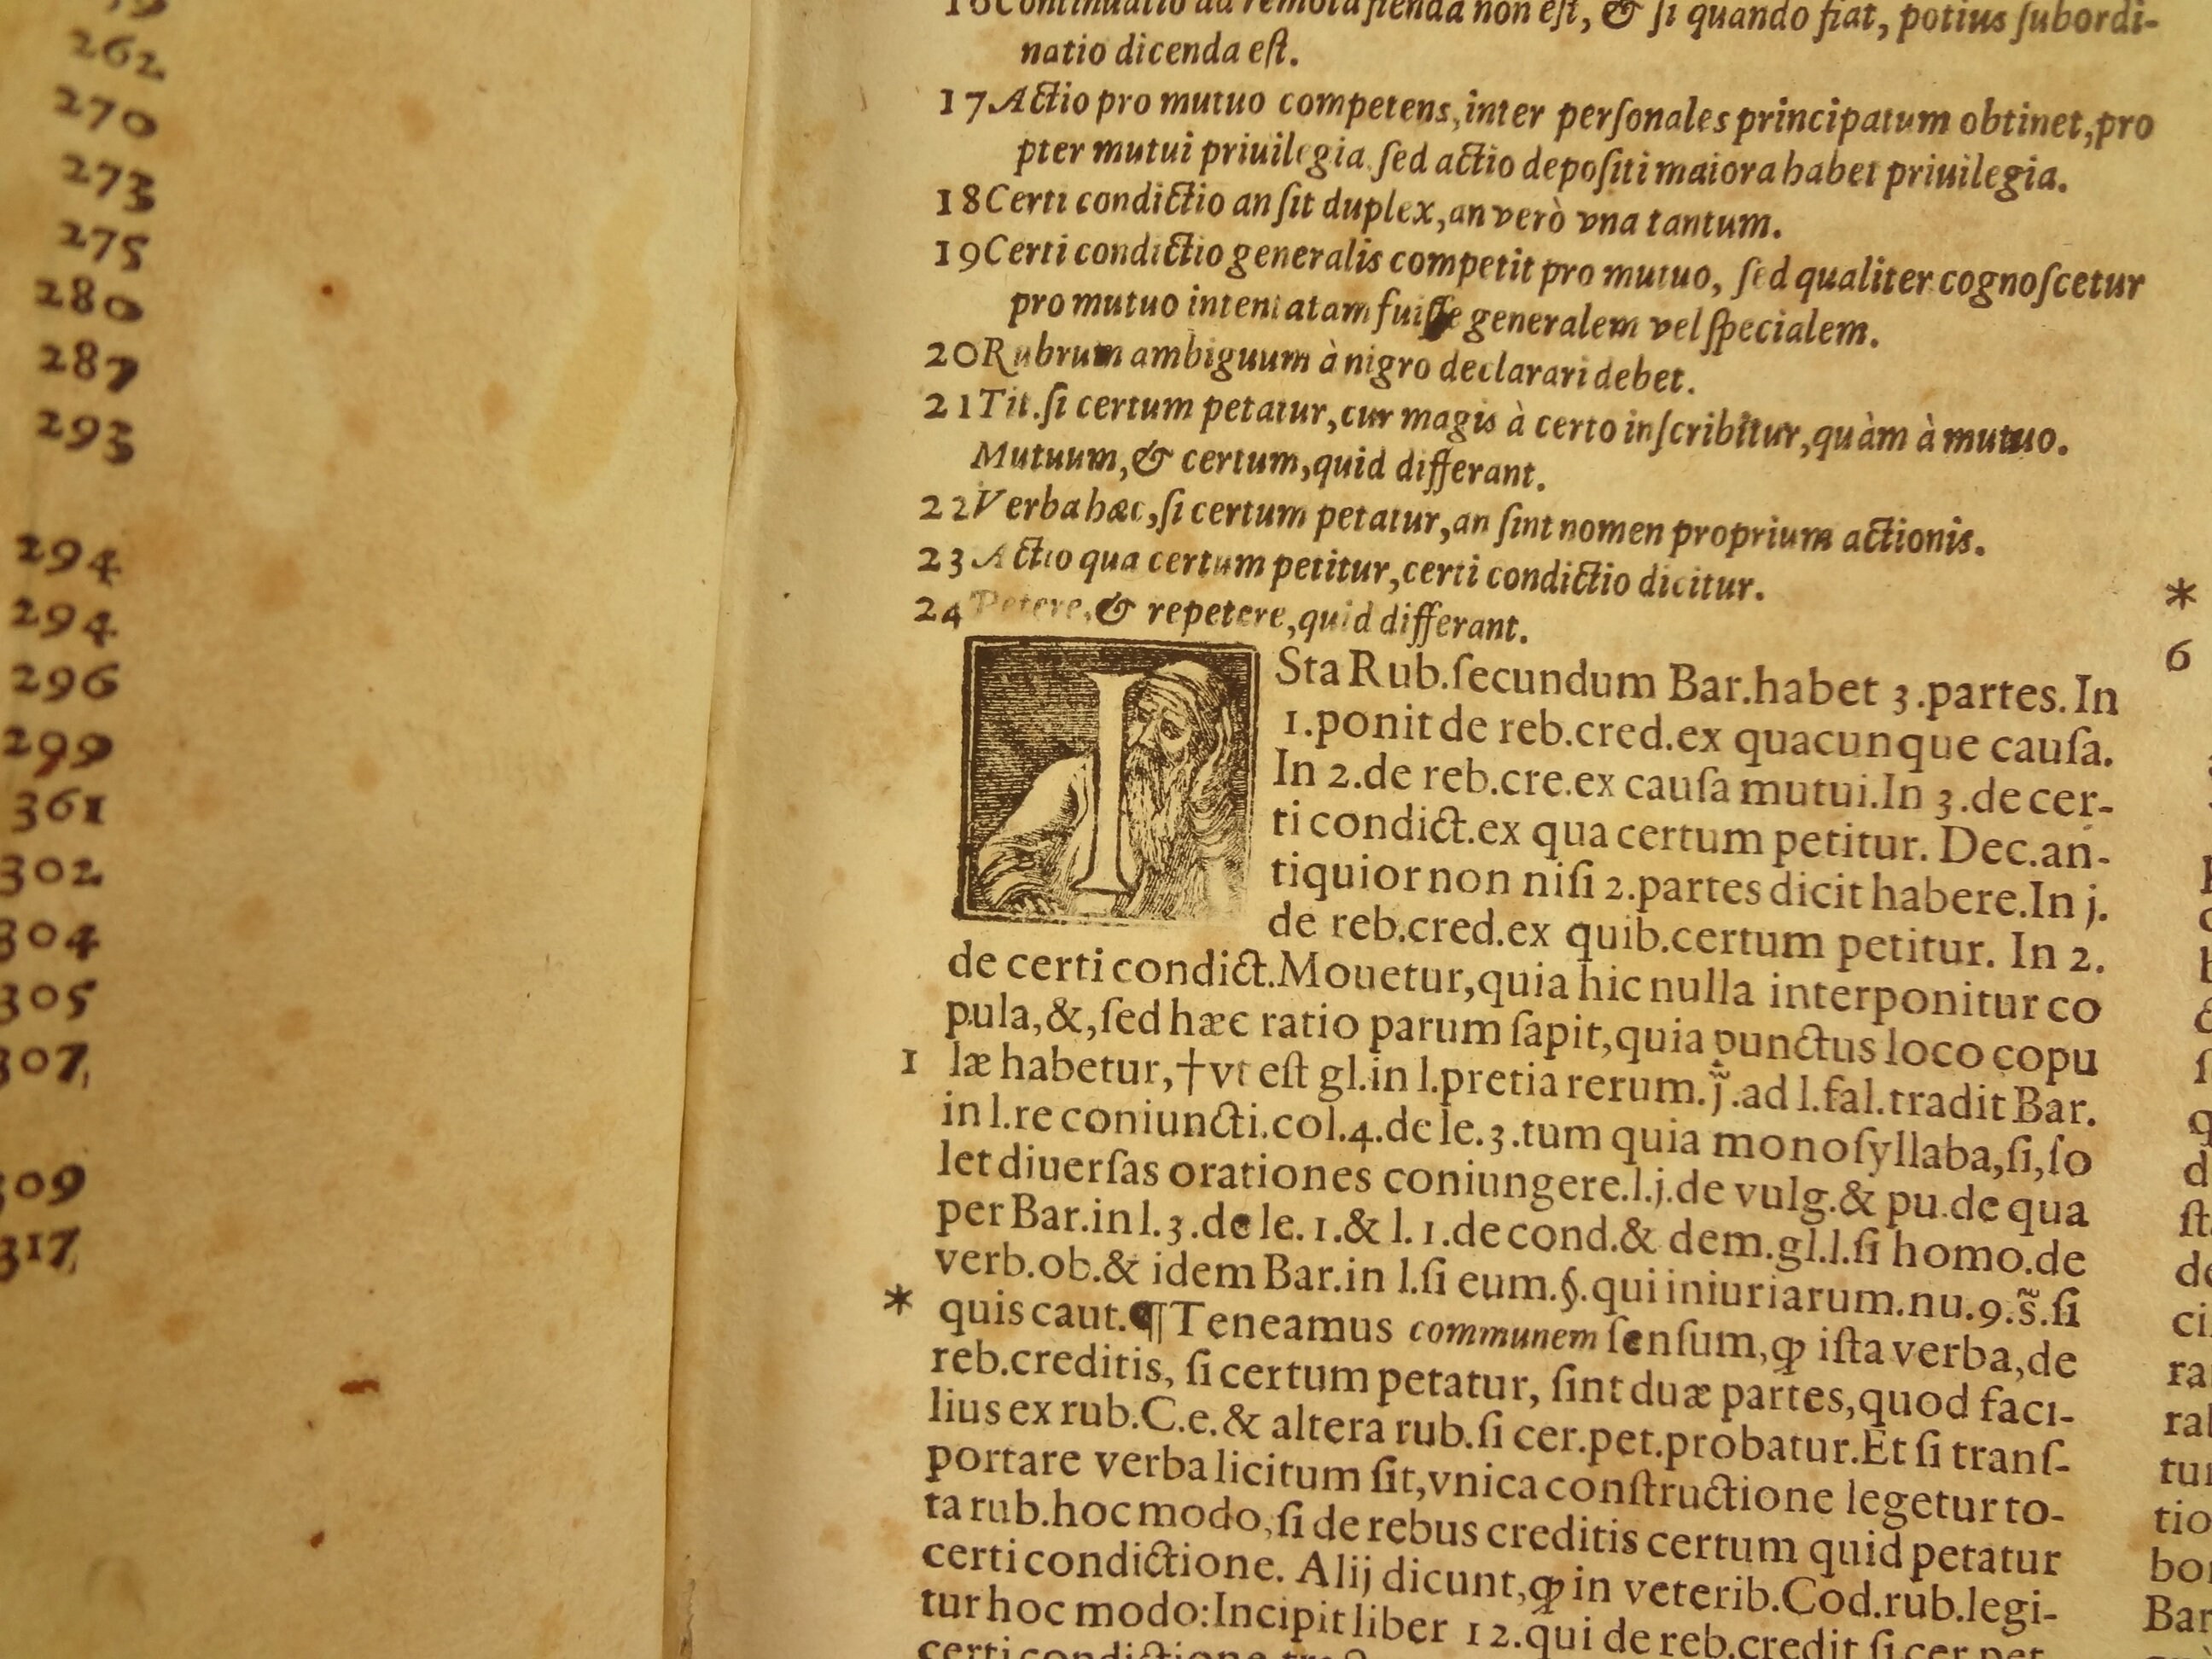 262
270
273
275
280
287
293
294
294
296
299
361
302
304
305
307,
309
317,
16Continuatio ad remota fienda non eſt, & ſi quando fiat, potius ſubordi-
natio dicenda eſt.
17Actio pro mutuo competens,inter perſonales principatum obtinet,pro
pter mutui priuilegia.ſed actio depoſiti maiora habet priuilegia.
18Certi condictio an ſit duplex,an verò vna tantum.
19Certi condictio generalis competit pro mutuo, ſed qualiter cognoſcetur
pro mutuo intentatam fuiſſe generalem vel ſpecialem.
20Rubrum ambiguum à nigro declarari debet.
21Tit.ſi certum petatur,cur magis à certo inſcribitur,quàm à mutuo.
Mutuum,& certum,quid differant.
22Verba hæc,ſi certum petatur,an ſint nomen proprium actionis.
23Actio qua certum petitur,certi condictio dicitur.
24Petere,& repetere,quid differant.
ISta Rub.ſecundum Bar.habet 3.partes.In
1.ponit de reb.cred.ex quacunque cauſa.
In 2.de reb.cre.ex cauſa mutui.In 3.de cer-
ti condict.ex qua certum petitur. Dec.an-
tiquior non niſi 2.partes dicit habere.In j.
de reb.cred.ex quib.certum petitur. In 2.
de certi condict.Mouetur,quia hic nulla interponitur co
pula,&,ſed hæc ratio parum ſapit,quia punctus loco copu
1 læ habetur,†vt eſt gl.in l.pretia rerum.j̃.ad l.fal.tradit Bar.
in l.re coniuncti.col.4.de le.3.tum quia monoſyllaba,ſi,ſo
let diuerſas orationes coniungere.l.j.de vulg.& pu.de qua
per Bar.in l.3.de le.1.& l.1.de cond.& dem.gl.l.ſi homo.de
verb.ob.& idem Bar.in l.ſi eum.§.qui iniuriarum.nu.9.s̃.ſi
* quis caut.¶Teneamus communem ſenſum,ꝙ iſta verba,de
reb.creditis, ſi certum petatur, ſint duæ partes,quod faci-
lius ex rub.C.e.& altera rub.ſi cer.pet.probatur.Et ſi tranſ-
portare verba licitum ſit,vnica conſtructione legetur to-
ta rub.hoc modo,ſi de rebus creditis certum quid petatur
certi condictione. Alij dicunt,ꝙ in veterib.Cod.rub.legi-
tur hoc modo:Incipit liber 12.qui de reb.credit ſi cer.pet.
*
6